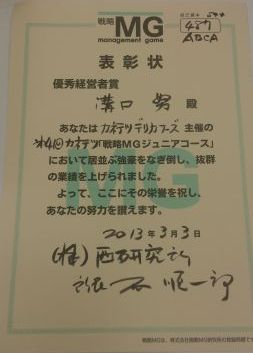 戦略MG
management game
自己資本
ABCA
表彰状
優秀経営者賞
溝口 努 殿
あなたは カネテツデリカフーズ 主催の
第4回カネテツ「戦略MGジュニアコース」
において居並ぶ強豪をなぎ倒し、抜群
の業績を上げられました。
よって、ここにその栄誉を祝し、
あなたの努力を讃えます。
2013年3月3日
(株)西研究所
所長 石 順一郎